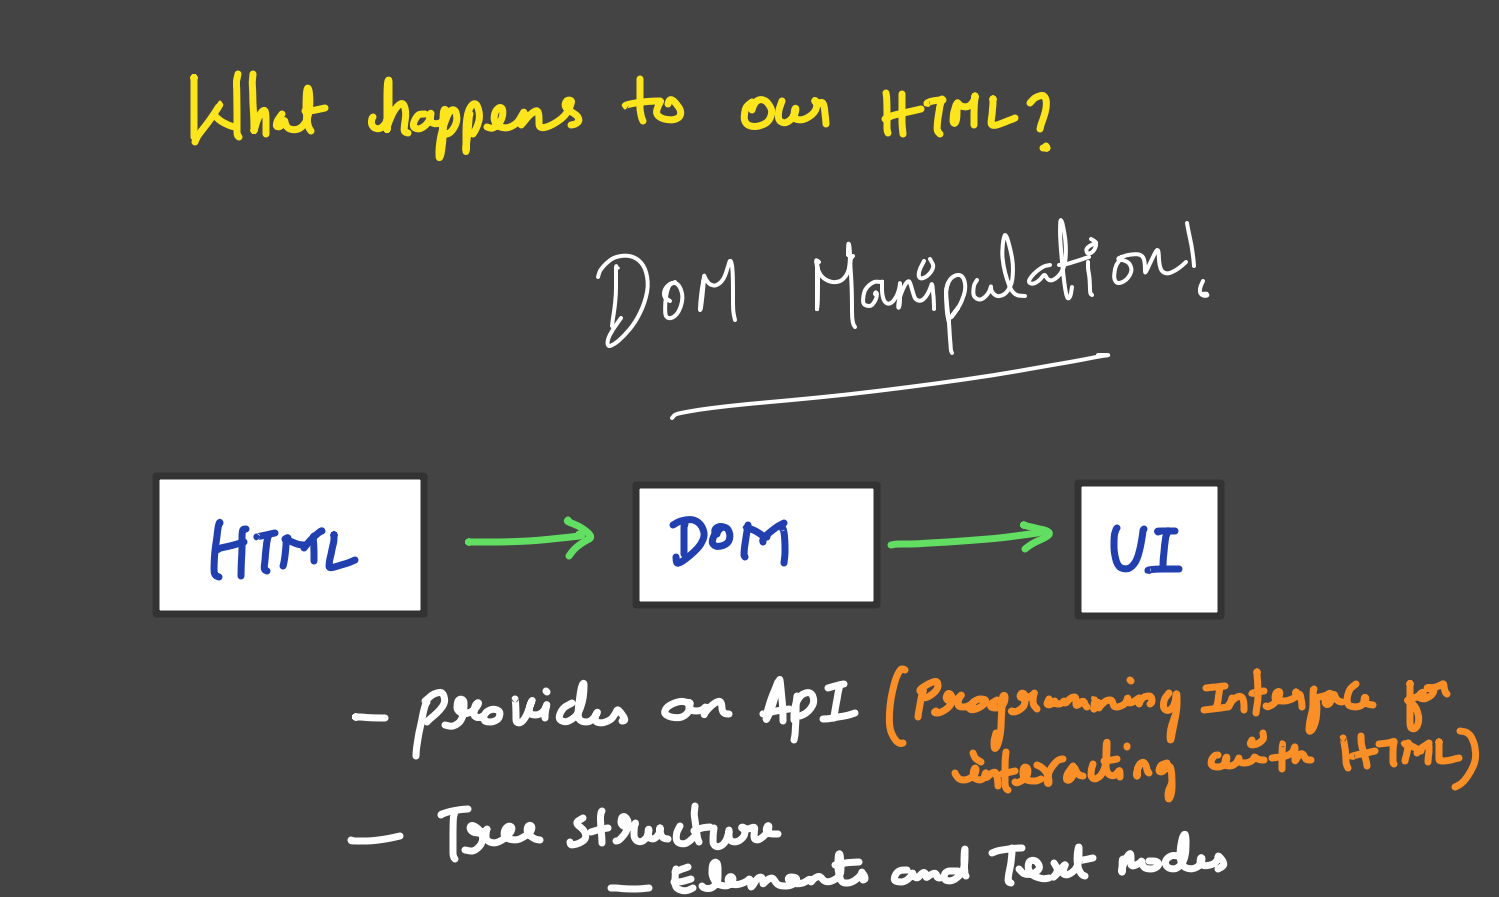 What happens to our HTML?
DOM Manipulation!
HTML → DOM → UI
- provides an API (Programming Interface for
interacting with HTML)
- Tree structure
- Elements and Text nodes